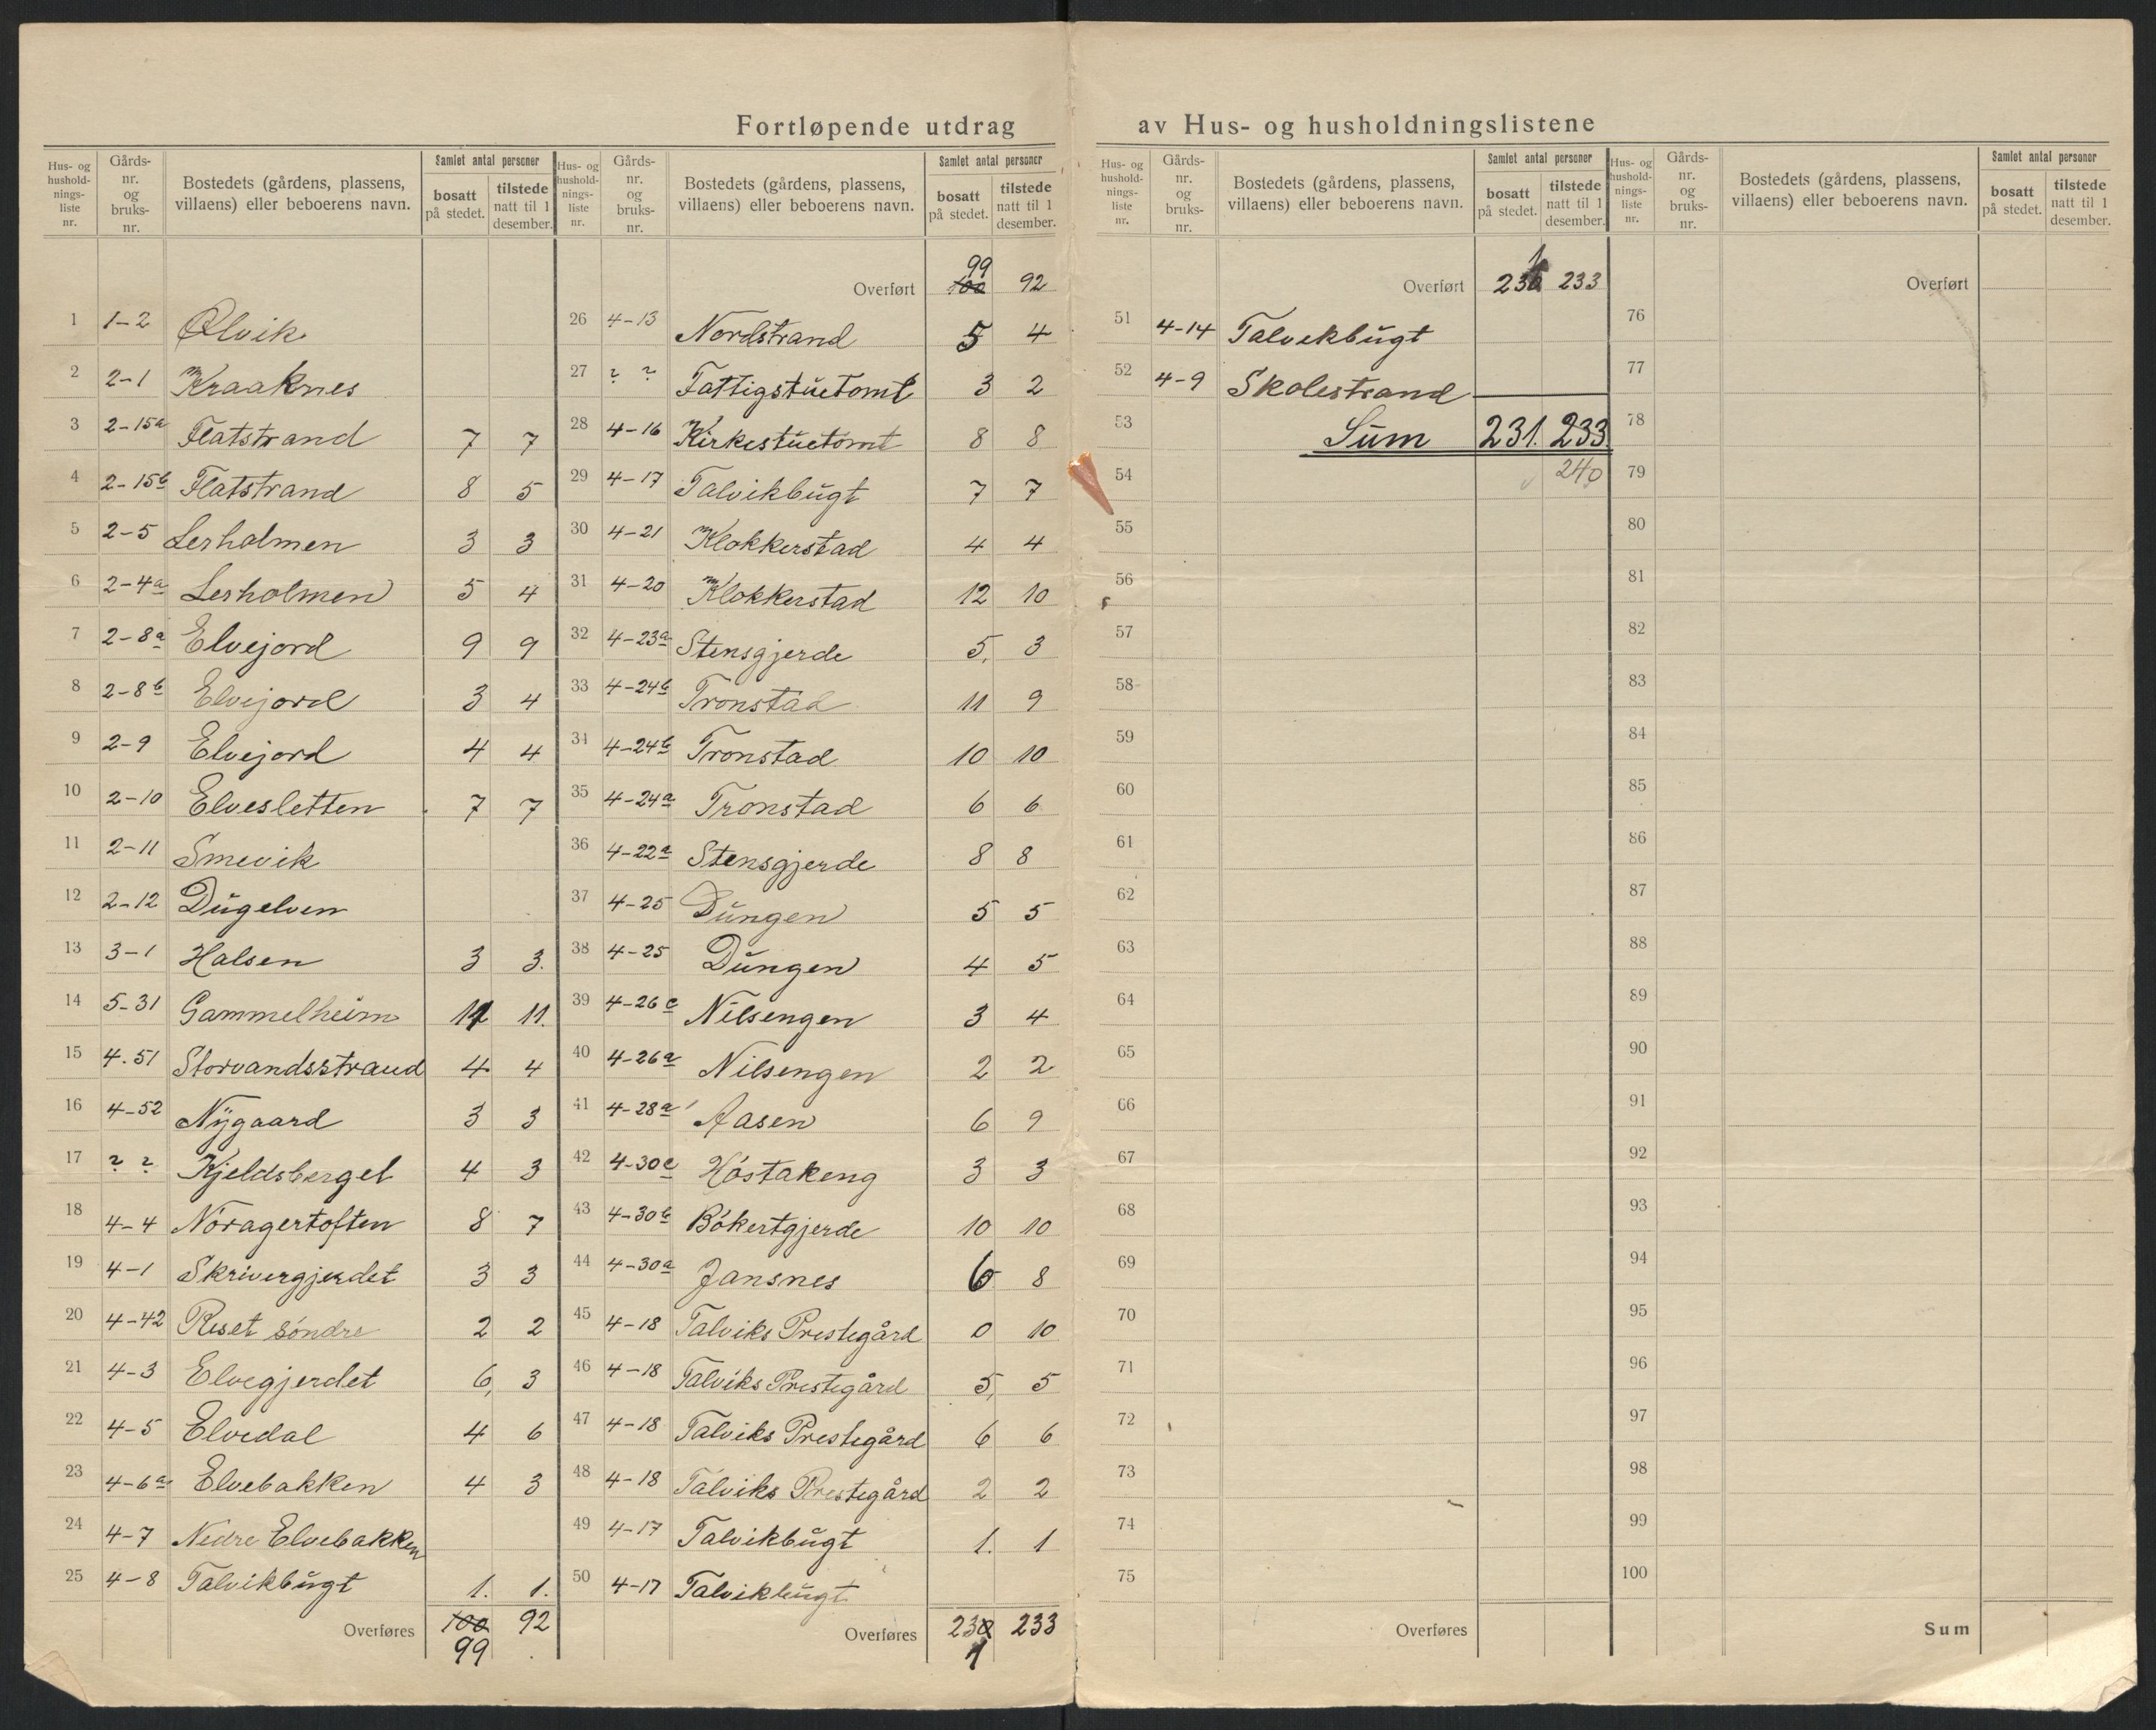 Fortløpende utdrag av Hus- og husholdningslistene
Hus- og husholdnings-liste nr. | Gårds-nr. og bruks-nr. | Bostedets (gårdens, plassens, villaens) eller beboerens navn. | Samlet antal personer | bosatt på stedet. | tilstede natt til 1 desember.
1 1-2 Ølvik
2 2-1 Kraaknes
3 2-15a Flatstrand 7 7
4 2-15b Flatstrand 8 5
5 2-5 Lerholmen 3 3
6 2-4a Lerholmen 5 4
7 2-8a Elvejord 9 9
8 2-8b Elvejord 3 4
9 2-9 Elvejord 4 4
10 2-10 Elvesletten 7 7
11 2-11 Smevik
12 2-12 Dugelven
13 3-1 Halsen 3 3.
14 5-31 Gammelheim 11 11.
15 4.51 Storvandsstrand 4 4
16 4-52 Nygaard 3 3
17 ? ? Kjeldsberget 4 3
18 4-4 Noragertoften 8 7
19 4-1 Skrivergjerdet 3 3
20 4-42 Reset söndre 2 2
21 4-3 Elvegjerdet 6 3
22 4-5 Elvedal 4 6
23 4-6a Elvebakken 4 3
24 4-7 Nedre Elvebakken
25 4-8 Talvikbugt 1. 1.
Overføres 100 92
99
Hus- og husholdnings-liste nr. | Gårds-nr. og bruks-nr. | Bostedets (gårdens, plassens, villaens) eller beboerens navn. | Samlet antal personer | bosatt på stedet. | tilstede natt til 1 desember.
99
Overført 100 92
26 4-13 Nordstrand 5 4
27 ? ? Fattigstuetomt 3 2
28 4-16 Kirkestuetomt 8 8
29 4-17 Talvikbugt 7 7
30 4-21 Klokkerstad 4 4
31 4-20 Klokkerstad 12 10
32 4-23a Stensgjerde 5. 3
33 4-24b Tronstad 11 9
34 4-24b Tronstad 10 10
35 4-24a Tronstad 6 6
36 4-22a Stensgjerde 8 8
37 4-25 Dungen 5 5
38 4-25 Dungen 4 5
39 4-26c Nilsengen 3 4
40 4-26a Nilsengen 2 2
41 4-28a Aasen 6 9
42 4-30c Höstakeng 3 3
43 4-30b Bökertgjerde 10 10
44 4-30a Jansnes 6 8
45 4-18 Talviks Prestegård 0 10
46 4-18 Talviks Prestegård 5, 5
47 4-18 Talviks Prestegård 6 6
48 4-18 Talviks Prestegård 2 2
49 4-17 Talvikbugt 1. 1
50 4-17 Talvikbugt
Overføres 230 233
1
Hus- og husholdnings-liste nr. | Gårds-nr. og bruks-nr. | Bostedets (gårdens, plassens, villaens) eller beboerens navn. | Samlet antal personer | bosatt på stedet. | tilstede natt til 1 desember.
1
Overført 230 233
51 4-14 Talvikbugt
52 4-9 Skolestrand
53 Sum 231. 233
54 240
55
56
57
58
59
60
61
62
63
64
65
66
67
68
69
70
71
72
73
74
75
Overføres
Hus- og husholdnings-liste nr. | Gårds-nr. og bruks-nr. | Bostedets (gårdens, plassens, villaens) eller beboerens navn. | Samlet antal personer | bosatt på stedet. | tilstede natt til 1 desember.
Overført
76
77
78
79
80
81
82
83
84
85
86
87
88
89
90
91
92
93
94
95
96
97
98
99
100
Sum